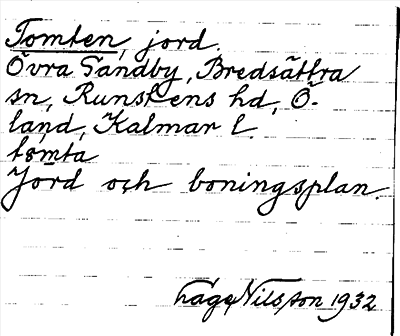 Tomten, jord.
Övra Sandby, Bredsättra
sn, Runstens hd, Ö-
land, Kalmar l.
tomta
Jord och boningsplan.
Nilsson 1932